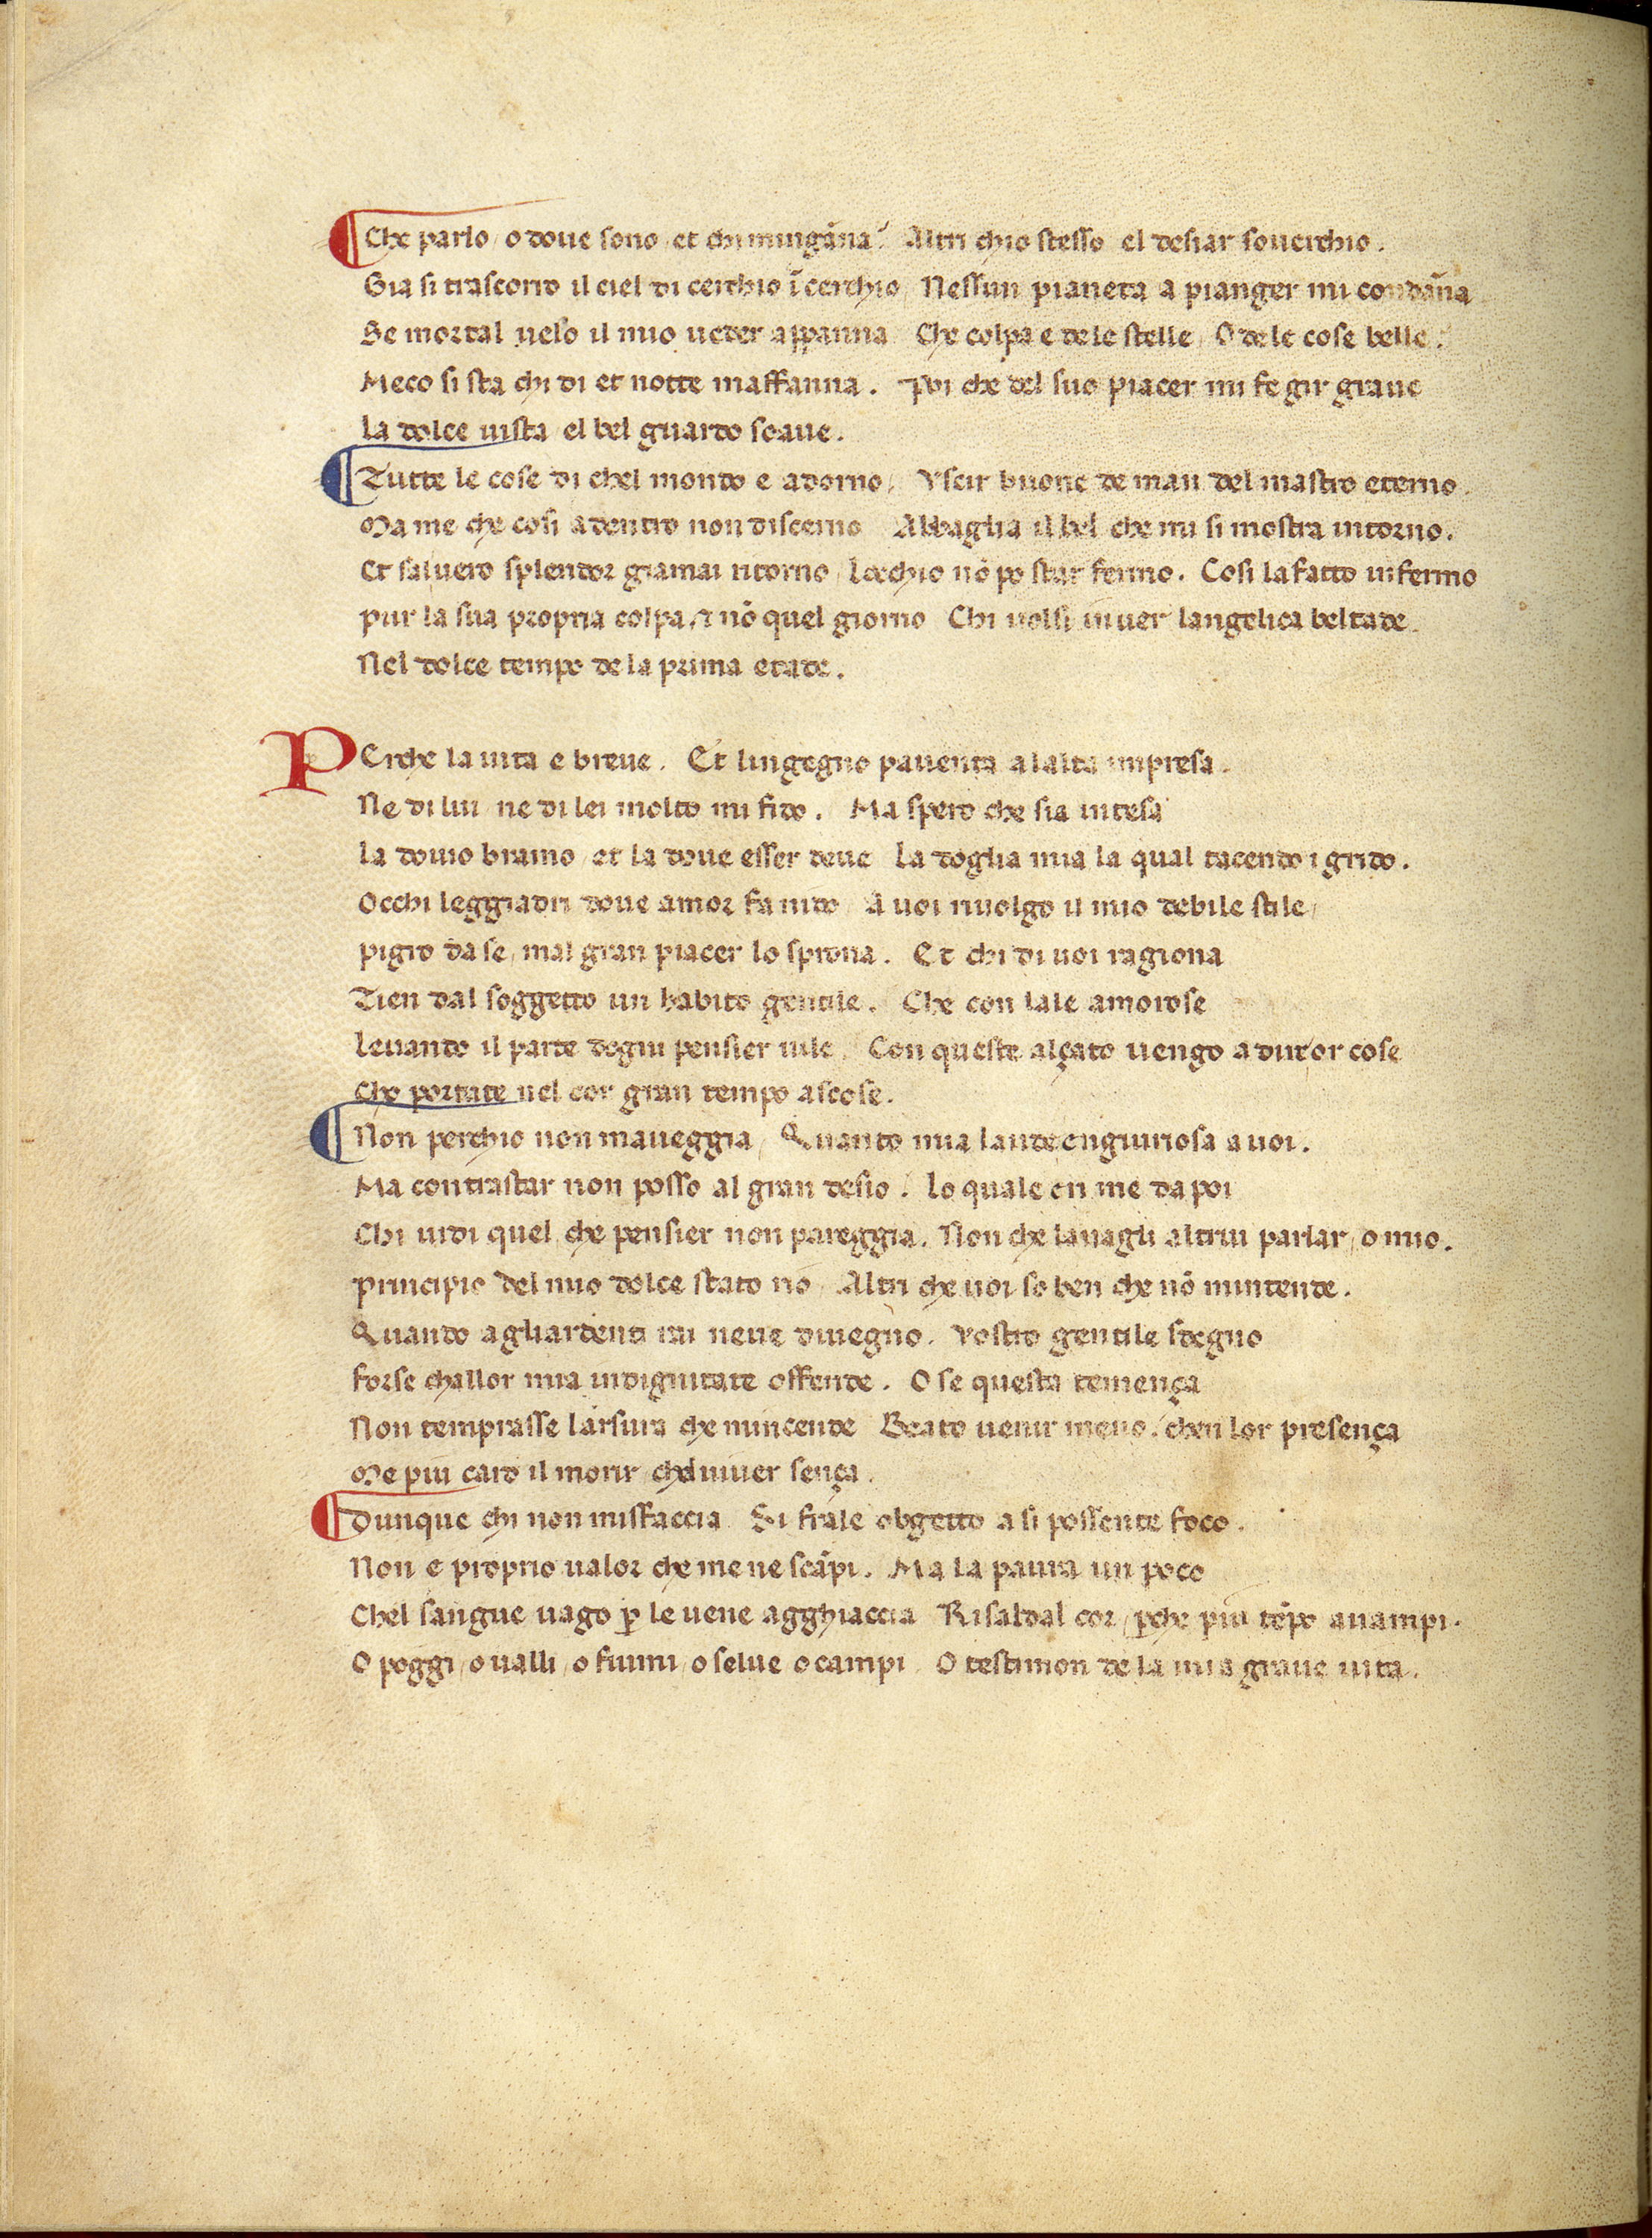 Che parlo / o doue sono / et chi mingāna? Altri chio stesso el desiar souerchio.
Gia si trascorro il ciel di cerchio ī cerchio / Nessun pianeta a pianger mi condāna
Se mortal uelo il mio ueder appanna Che colpa e de le stelle / O de le cose belle.
Meco si sta chi di et notte maffanna. Poi che del suo piacer mi fe gir graue
La dolce uista el bel guardo soaue.
Tutte le cose di chel mondo e adorno / Vscir buone de man del mastro eterno.
Ma me che cosi adentro non discerno Abbaglia il bel che mi si mostra intorno.
Et saluero splendor giamai ritorno / Locchio nō po star fermo. Cosi la fatto infermo
pur la sua propria colpa, ⁊ nō quel giorno Chi uolsi inuer langelica beltade.
Nel dolce tempo de la prima etade.
PErche la uita e breue. Et lingegno pauenta alalta impresa.
Ne di lui ne di lei molto mi fido. Ma spero che sia intesa
la douio bramo / et la doue esser deue La doglia mia la qual tacendo i grido.
Occhi leggiadri doue amor fa nido / A uoi riuolgo il mio debile stile /
pigro da se / mal gran piacer lo sprona. Et chi di uoi ragiona
Tien dal soggetto un habito gentile. Che con lale amorose
leuando il parte dogni pensier uile. Con queste alçato uengo a dir or cose
Cho portate nel cor gran tempo ascose.
Non perchio non maueggia / Quanto mia laude engiuriosa a uoi.
Ma contrastar non posso al gran desio. lo quale en me da poi
Chi uidi quel che pensier non pareggia. Non che lauagli altrui parlar / o mio.
principio del mio dolce stato rio / Altri che uoi so ben che nō mintende.
Quando agliardenti rai neue diuegno. Vostro gentile sdegno
forse challor mia indignitate offende. O se questa temença
Non temprasse larsura che mincende Beato uenir meno. chen lor presença
Me piu caro il morir chel uiuer sença.
Dunque chi non misfaccia Si frale obgetto a si possente foco.
Non e proprio ualor che me ne scāpi. Ma la paura un poco
Chel sangue uago p̱ le uene agghiaccia Risaldal cor / p̱che piu tēpo auampi.
O poggi / o ualli / o fiumi / o selue o campi O testimon de la mia graue uita.